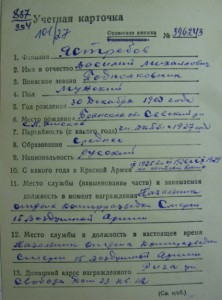 807
354
Учетная карточка
101/27
Орденская книжка № 396243
1. Фамилия Ястребов
2. Имя и отчество Василий Михайлович
3. Воинское звание Подполковник
4. Пол Мужской
5. Год рождения 30 Декабря 1903 года
6. Место рождения
7. Партийность (с какого года) 1927 года
8. Образование Среднее
9. Национальность русский
10. С какого года в Красной Армии
11. Место службы (наименование части) и занимаемая
должность в момент награждения Начальник
отдела контрразведки Смерш
15 Воздушной Армии
12. Место службы и должность в настоящее время
Начальник отдела контрразведки
Смерш 15 Воздушной Армии
13. Домашний адрес награжденного Рига ул.
(См. н/об.)